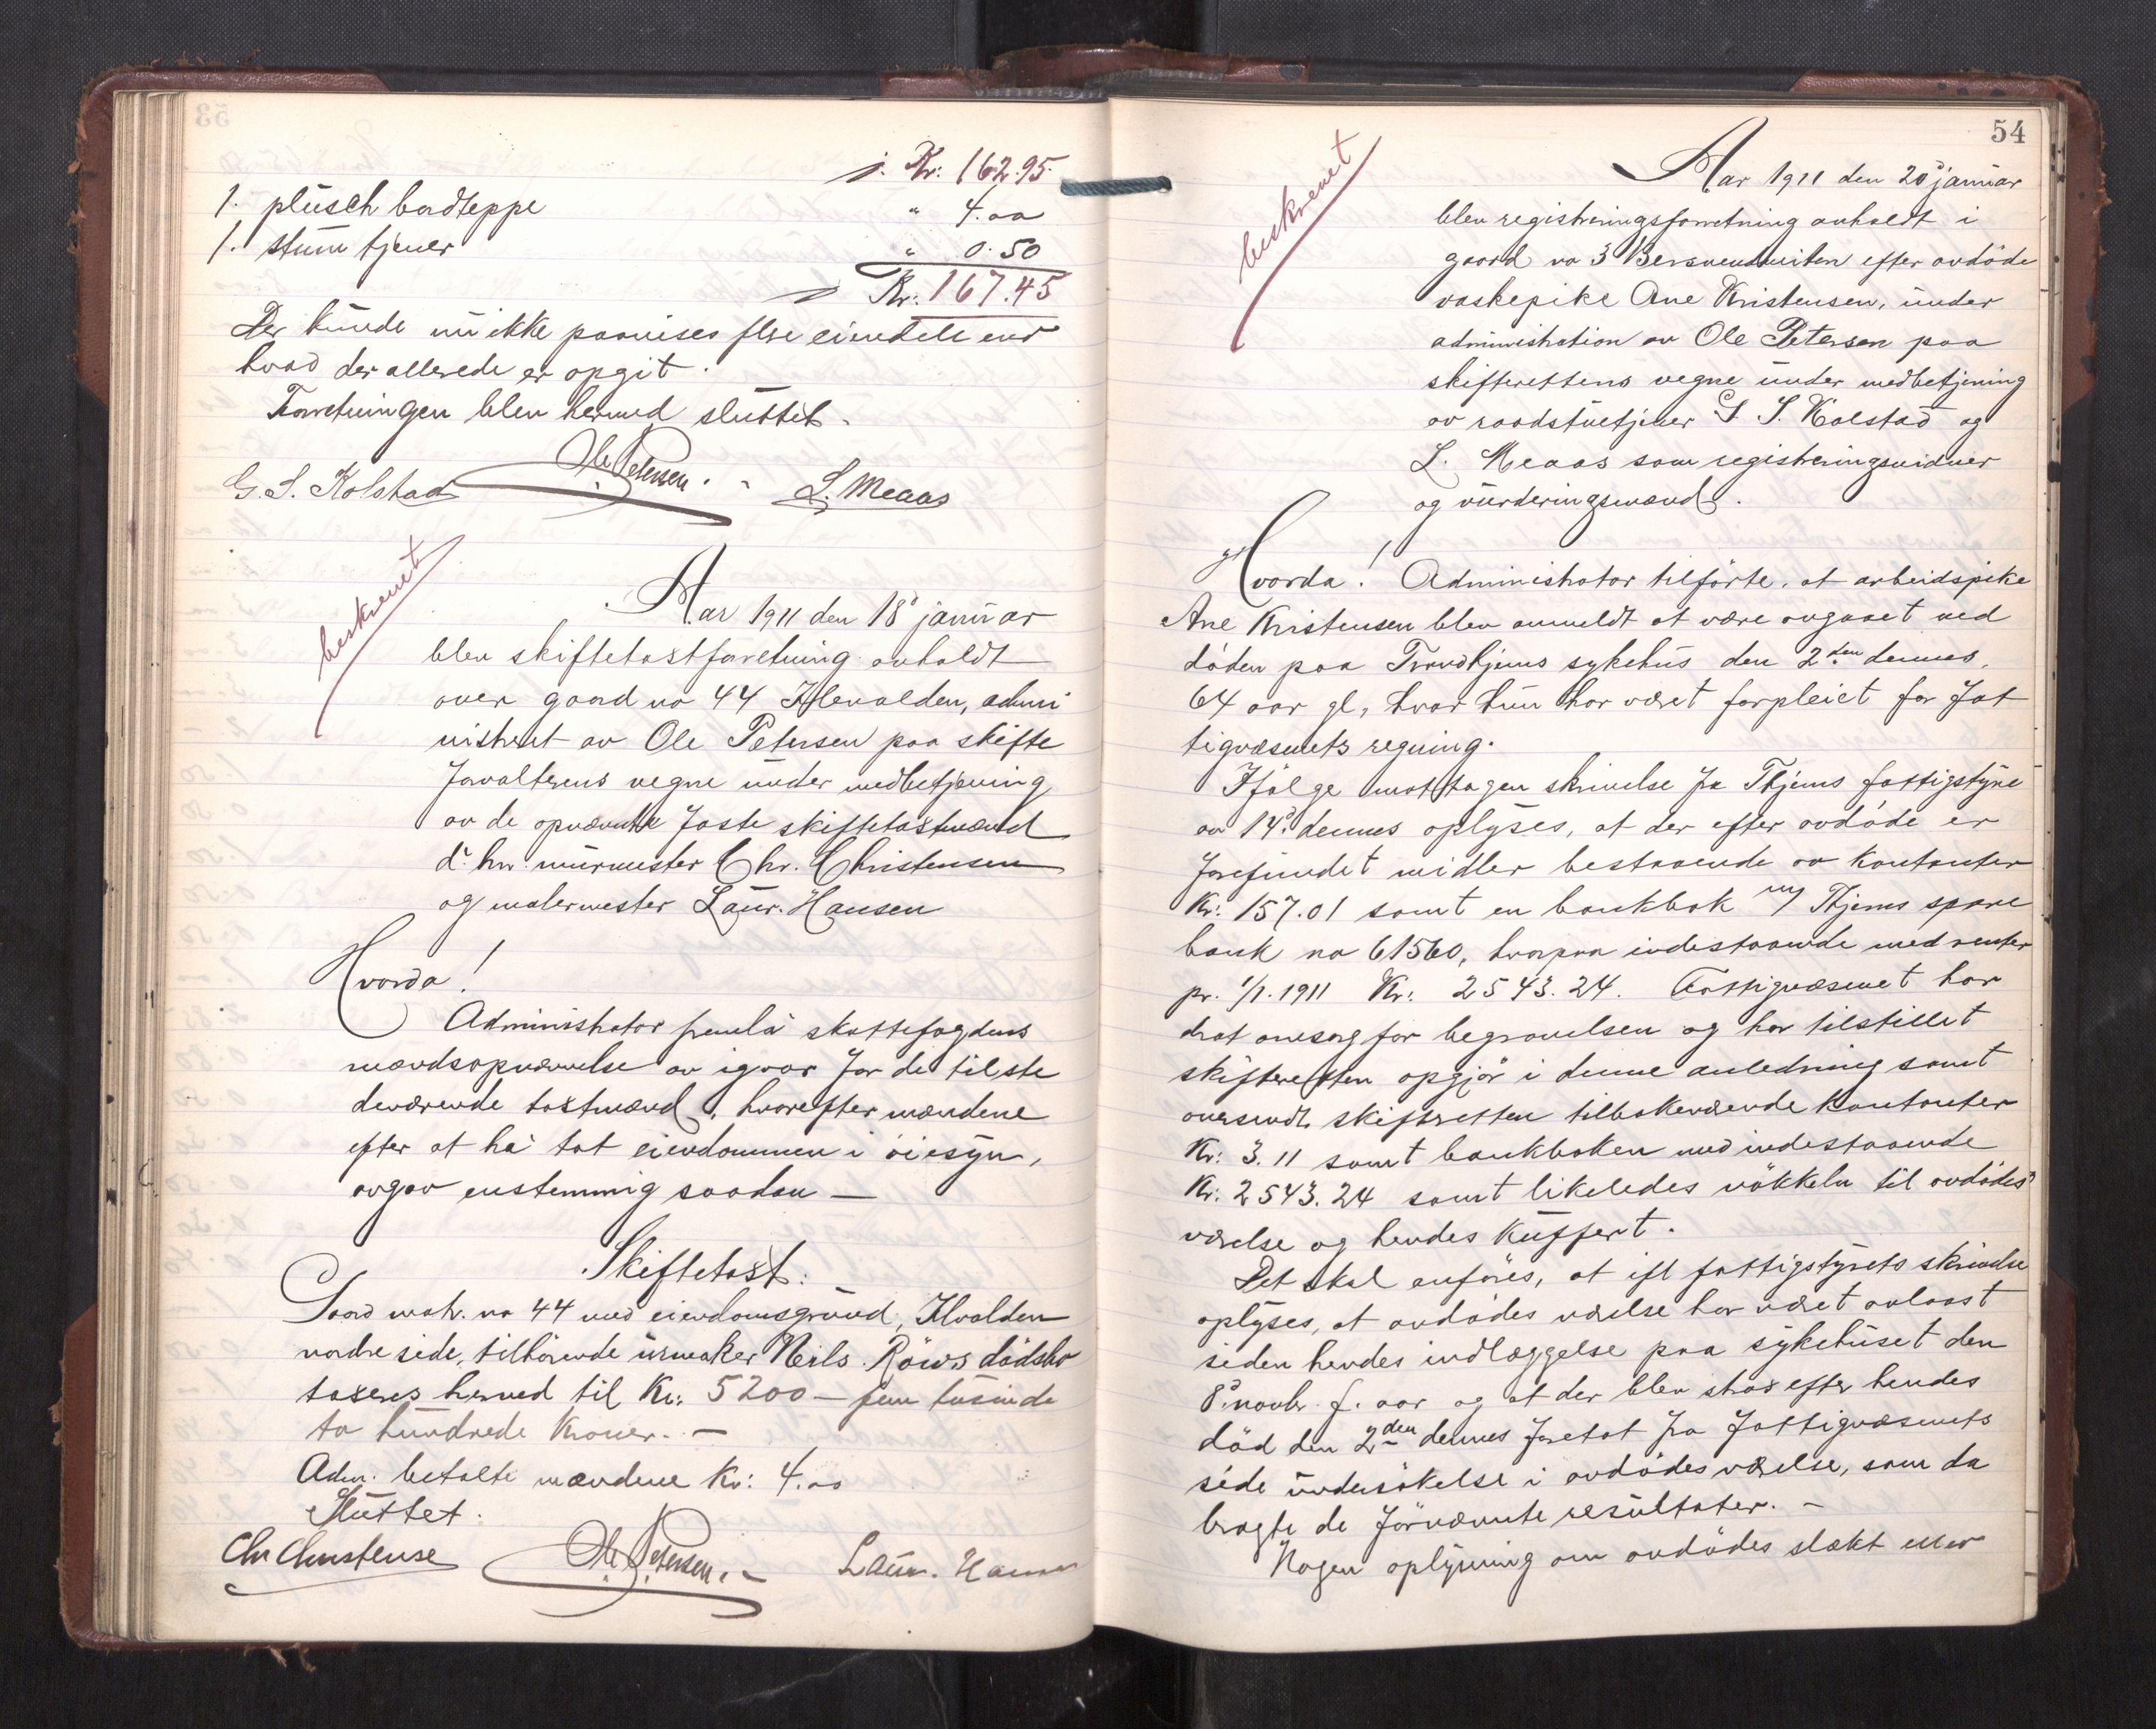 t. Kr: 162.95
1. plüsch bordteppe " 4.00
1. stum tjener " 0.50
t. Kr: 167.45
Der kunde nu ikke paavises flere eiendele end
hvad der allerede er opgit.
Forretningen blev hermed sluttet.
G. S. Kolstad Ole Petersen. L. Meaas
beskrevet
Aar 1911 den 18d januar
blev skiftetaxtforretning avholdt
over gaard no 44 Ilevolden, admi
nistrert av Ole Petersen paa skifte
forvalterens vegne under medbetjening
av de opnævnte faste skiftetaxtmænd
d'hrr. murmester Chr. Christensen
og malermester Laur. Hansen
Hvorda!
Administrator fremla skattefogdens
mandsopnævnelse av igaar for de tilste
deværende taxtmænd, hvorefter mændene
efter at ha tat eiendommen i öiesyn,
avgav enstemmig saadan —
Skiftetaxt:
Gaard matr. no 44 med eiendomsgrund, Ilevolden
nordre side, tilhörende urmaker Neils Röivs dödsbo
taxeres herved til Kr: 5200 — fem tusinde
to hundrede Kroner. —
Adm. betalte mændene Kr: 4.00
Sluttet.
Chr Christense Ole Petersen. Laur. Hansen
54
beskrevet
Aar 1911 den 20d januar
blev registreringsforretning avholdt i
gaard no 3 Bersvendveiten efter avdöde
vaskepike Ane Kristensen, under
administration av Ole Petersen paa
skifterettens vegne under medbetjening
av raadstuetjener G. S. Kolstad og
L. Meaas som registreringsvidner
og vurderingsmænd.
Hvorda! Administrator tilförte, at arbeidspike
Ane Kristensen blev anmeldt at være avgaaet ved
döden paa Trondhjems sykehus den 2den dennes,
64 aar gl, hvor hun har været forpleiet for fat
tigvæsenets regning.
Ifölge mottagen skrivelse fra Thjems fattigstyre
av 14d dennes oplyses, at der efter avdöde er
forefundet midler bestaaende av kontanter
Kr: 157.01 samt en bankbok m/ Thjems spare
bank no 61560, hvorpaa indestaaende med renter
pr. 1/1. 1911 Kr: 2543.24. Fattigvæsenet har
drat omsorg for begravelsen og har tilstillet
skifteretten opgjör i denne anledning samt
oversendt skifteretten tilbakeværende kontanter
Kr: 3.11 samt bankboken med indestaaende
Kr: 2543.24 samt likeledes nökkeln til avdödes
værelse og hendes kuffert.
Det skal anföres, at ifl fattigstyrets skrivelse
oplyses, at avdödes værelse har været avlaast
siden hendes indlæggelse paa sykehuset den
8d novbr. f. aar og at der blev straks efter hendes
död den 2den dennes foretat fra fattigvæsenets
side undersökelse i avdödes værelse, som da
bragte de förnævnte resultater. —
Nogen oplysning om avdödes slækt eller